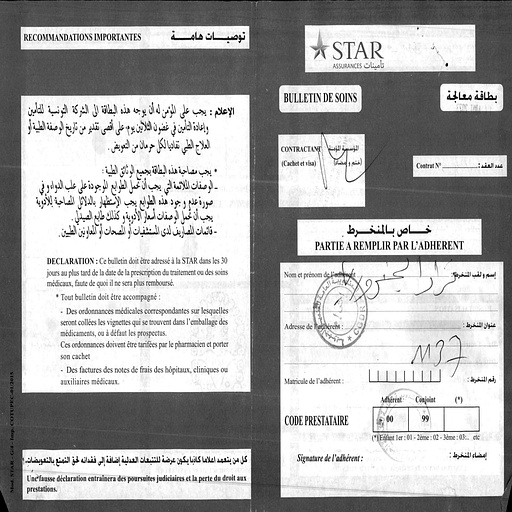 RECOMMANDATIONS IMPORTANTES
توصيـــات هامـــة
الإعلام : يجب على المؤمن له أن يوجه هذه البطاقة الى الشركة التونسية للتأمين
وإعادة التأمين في غضون الثلاثين يوم، على أقصى تقدير من تاريخ الوصفة الطبية أو
العلاج الطبي تفاديا لكل حرمان من التعويض.
* يجب مصاحبة هذه البطاقة بجميع الوثائق الطبية :
- الوصفات الملائمة التي يجب أن تحمل الطوابع الموجودة على علب الدواء و في
صورة عدم وجود هذه الطوابع يجب الاستظهار بالدلائل المصاحبة للأدوية
يجب أن تحمل الوصفات أسعار الأدوية و كذلك طابع الصيدلي.
- قائمات المصاريف لدى المستشفيات أو المصحات أو المعاونين الطبيين.
DECLARATION : Ce bulletin doit être adressé à la STAR dans les 30
jours au plus tard de la date de la prescription du traitement ou des soins
médicaux, faute de quoi il ne sera plus remboursé.
* Tout bulletin doit être accompagné :
- Des ordonnances médicales correspondantes sur lesquelles
seront collées les vignettes qui se trouvent dans l'emballage des
médicaments, ou à défaut les prospectus.
Ces ordonnances doivent être tarifées par le pharmacien et porter
son cachet
- Des factures des notes de frais des hôpitaux, cliniques ou
auxiliaires médicaux.
كل من يتعمد إعلاما كاذبا يكون عرضة للتتبعات العدلية إضافة إلى فقدانه لحق التمتع بالتعويضات.
Une fausse déclaration entraînera des poursuites judiciaires et la perte du droit aux
prestations.
STAR
ASSURANCES تأمينات
BULLETIN DE SOINS
بطاقة معالجة
CONTRACTANT المؤسسة المؤمنة
(Cachet et visa) (ختم و إمضاء)
Contrat N° عدد العقد :
خـــاص بالمنخـرط
PARTIE A REMPLIR PAR L'ADHERENT
Nom et prénom de l'adhérent إسم و لقب المنخرط :
Adresse de l'adhérent : عنوان المنخرط :
1137
Matricule de l'adhérent : رقم المنخرط :
Adhérent Conjoint (*)
CODE PRESTATAIRE 00 99
(*) Enfant 1er : 01 - 2ème : 02 - 3ème : 03... etc
Signature de l'adhérent : إمضاء المنخرط :